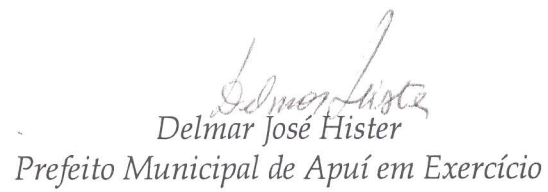 Delmar Hister
Delmar José Hister
Prefeito Municipal de Apuí em Exercício